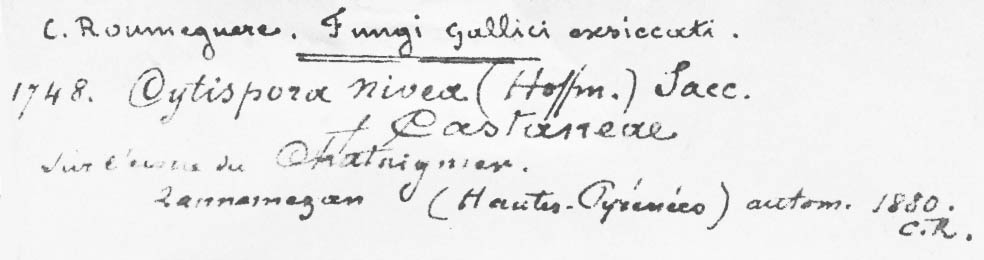 C. Roumeguere. Fungi gallici exsiccati.
1748. Cytispora nivea (Hoffm.) Sacc.
f. Castaneae
Sur l'écorce du Chataignier.
Lannemezan (Hautes-Pyrénées) autom. 1880.
C.R.